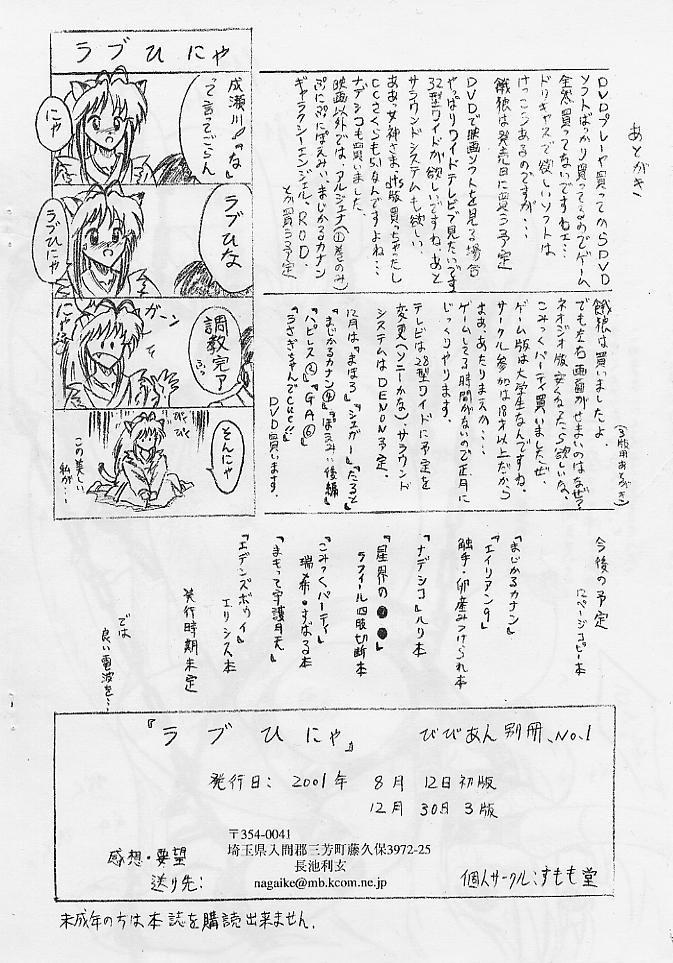 ラブひにゃ
成瀬川!!「な」
って言ってごらん
にゃ
ラブひな
ラブひにゃ
調教完了
ふっ
ガーン
にゃ
そんにゃ
びくびく
この美しい
私が・・・
あとがき
DVDプレーヤ買ってからSDVD
ソフトばっかり買ってるのでゲーム
全然買ってないですねェ・・・
ドリキャスで欲しいソフトは
けっこうあるのですが・・・
餓狼は発売日に買う予定
DVDで映画ソフトを見る場合
やっぱりワイドテレビで見たいです
32型ワイドが欲しいですね、あと
サラウンドシステムも欲しい
ああっ女神さまっdts版買っちゃったし
CCさくらも5.1なんですよね・・・
ナデシコも買いました
映画以外では、アルジェナ(①巻のみ)
ぷにぷにぽえみぃ、まじかるカナン
ギャラクシーエンジェル、R.O.D.
とか買う予定
(3版用あとがき)
餓狼は買いましたよ。
でも左右画面がせまいのはなぜ?
ネオジオ版安くなったら欲しいな、
こみっくパーティ買いましたぜ、
ゲーム版は大学生なんですね、
サークル参加は18才以上だから
まあ、あたりまえか・・・
ゲームしてる時間がないので正月に
じっくりやります。
テレビは28型ワイドに予定を
変更(ソニーかな)、サラウンド
システムはDENON予定、
12月は『まほろ』『シュガー』『たると』
『まじかるカナン④』『ぽえみぃ後編』
『ハピレス②』『GA⑥』
『うさぎちゃんでCue!!』
DVD買います。
今後の予定
12ページコピー本
『まじかるカナン』
『エイリアン9』
触手・卵産みつけられ本
『ナデシコ』ルリ本
『星界の●●』
ラフィール四肢切断本
『こみっくパーティ』
瑞希・すばる本
『まもって守護月天』
『エデンズボゥイ』
エリシス本
発行時期未定
では
良い電波を・・・
『ラブひにゃ』 びびあん別冊、No.1
発行日: 2001年 8月 12日初版
12月 30日 3版
〒354-0041
埼玉県入間郡三芳町藤久保3972-25
長池利玄
感想・要望
送り先:
nagaike@mb.kcom.ne.jp
個人サークル:すもも堂
未成年の方は本誌を購読出来ません.